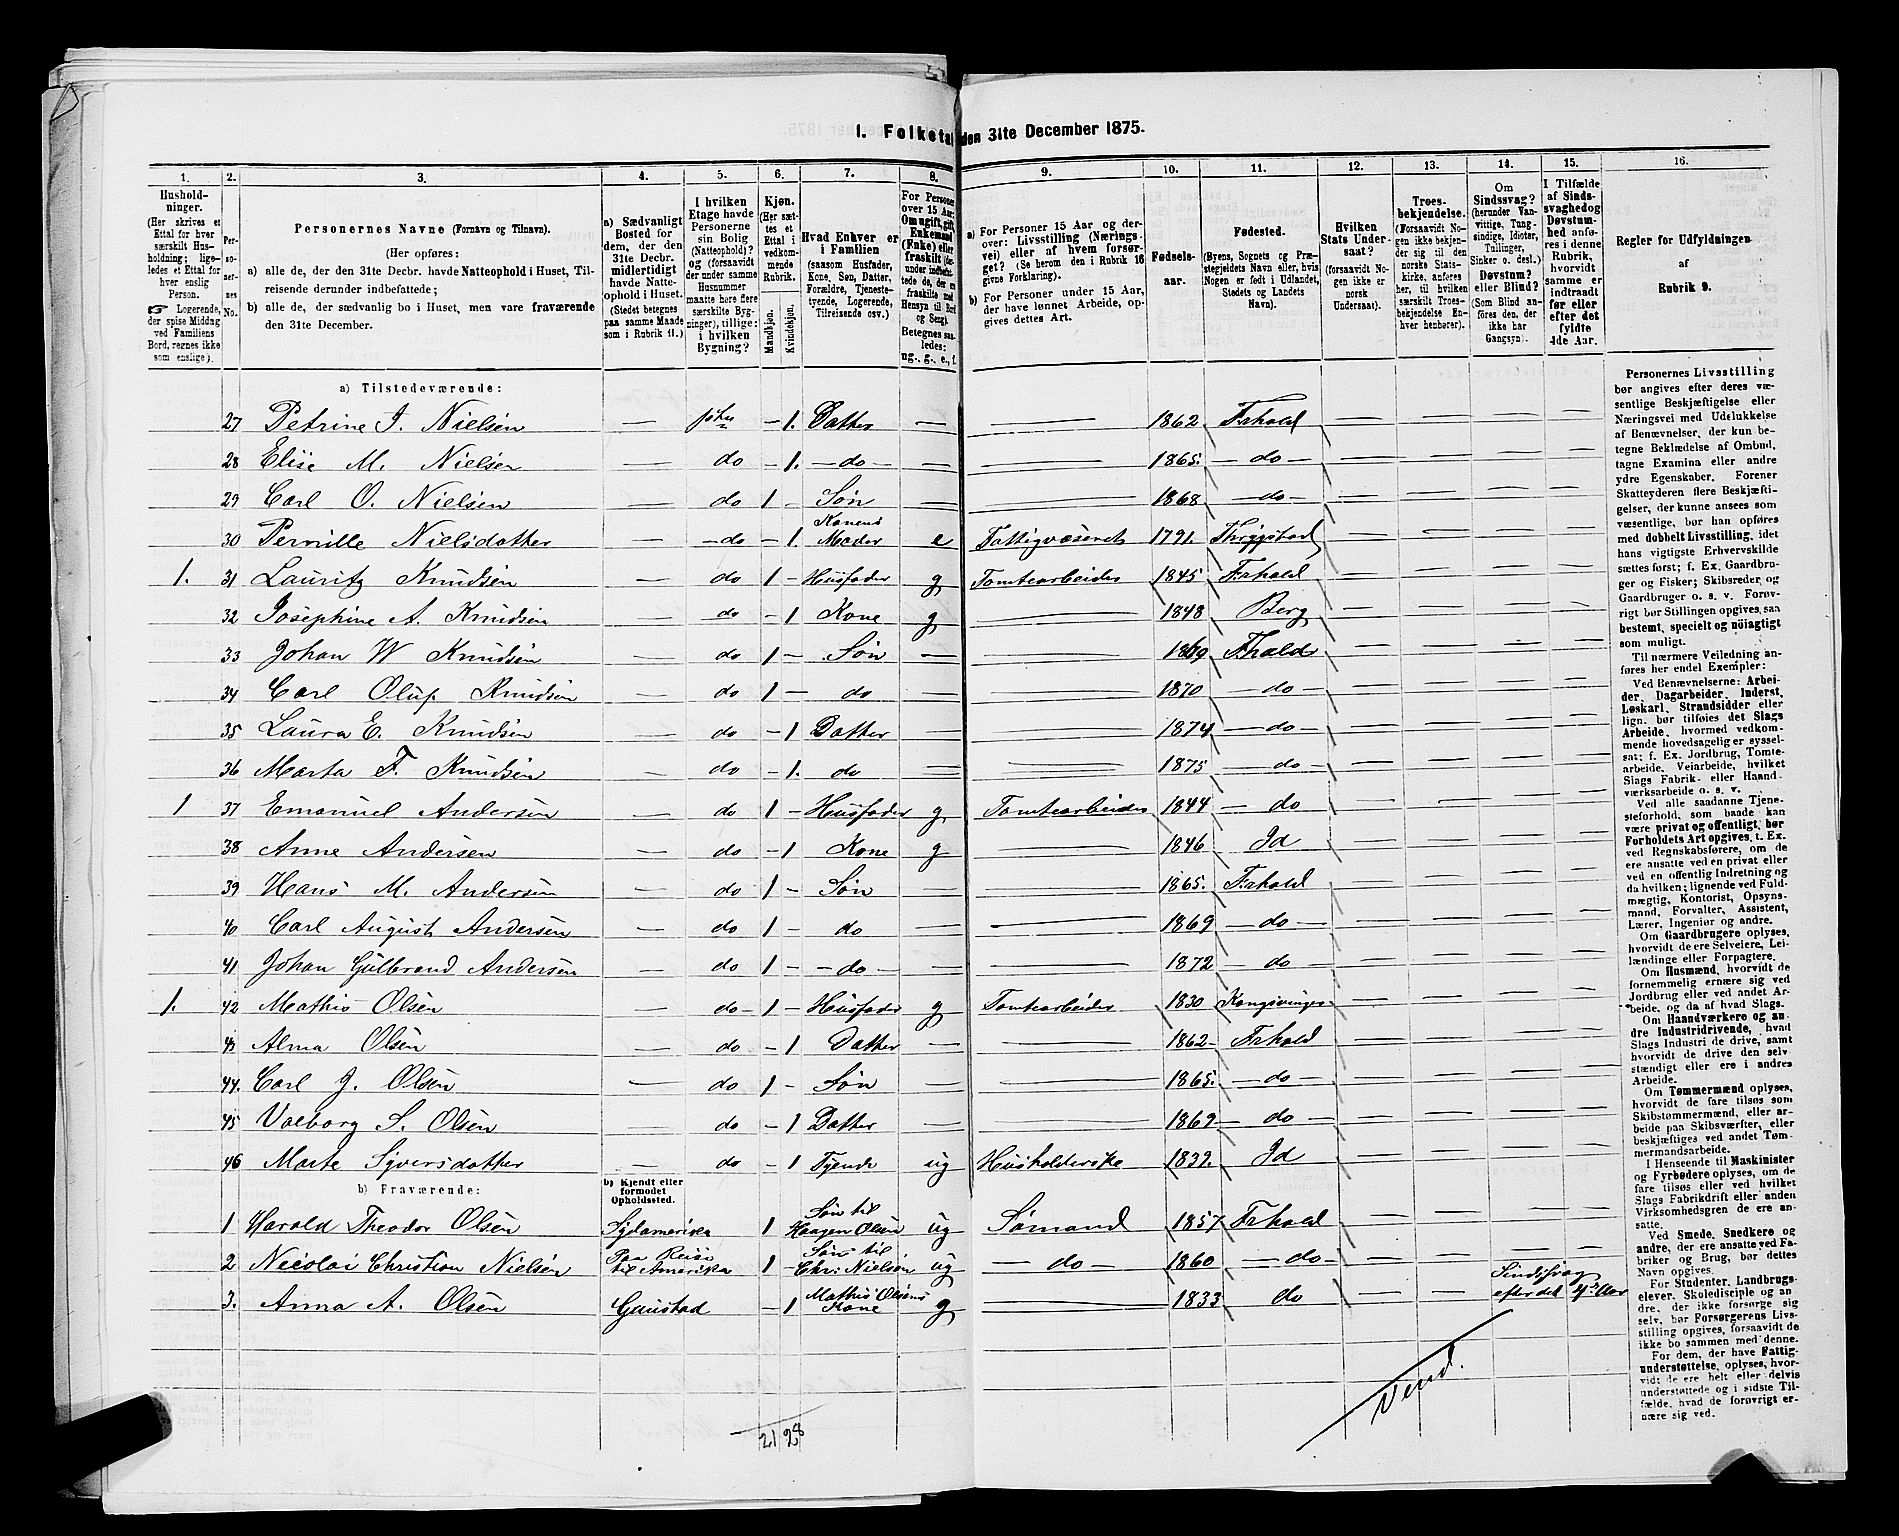 1. Folketa
den 31te December 1875.
1. 2. 3. 4. 5. 6. 7. 8. 9. 10. 11. 12. 13. 14. 15. 16.
Hushold-
ninger.
(Her skrives et
Ettal for hver
særskilt Hus-
holdning; lige-
ledes et Ettal for
hver enslig
Person.
☞ Logerende,
der spise Middag
ved Familiens
Bord, regnes ikke
som enslige).
Per-
so-
ner-
nes
No.
Personernes Navne (Fornavn og Tilnavn).
(Her opføres:
a) alle de, der den 31te Decbr. havde Natteophold i Huset, Til-
reisende derunder indbefattede;
b) alle de, der sædvanlig bo i Huset, men vare fraværende
den 31te December.
a) Sædvanligt
Bosted for
dem, der den
31te Decbr.
midlertidigt
havde Natte-
ophold i Huset.
(Stedet betegnes
paa samme Maade
som i Rubrik 11.)
I hvilken
Etage havde
Personerne
sin Bolig
(Natteophold)?
og (forsaavidt
der under samme
Husnummer
maatte høre flere
særskilte Byg-
ninger), tillige:
i hvilken
Bygning?
Kjøn.
(Her sæt-
tes et
Ettal i
vedkom-
mende
Rubrik.
Mandkjøn.
Kvindekjøn.
Hvad Enhver er
i Familien
(saasom Husfader,
Kone, Søn, Datter,
Forældre, Tjeneste-
tyende, Logerende,
Tilreisende osv.)
For Personer
over 15 Aar:
Om ugift, gift,
Enkemand
(Enke) eller
fraskilt
Betegnes saa-
ledes:
ug., g., e., f.
a) For Personer 15 Aar og der-
over: Livsstilling (Nærings-
vei) eller af hvem forsør-
get? (Se herom den i Rubrik 16
givne Forklaring).
b) For Personer under 15 Aar,
der have lønnet Arbeide, op-
gives dettes Art.
Fødsels-
aar.
Fødested.
(Byens, Sognets og Præ-
stegjeldets Navn eller, hvis
Nogen er født i Udlandet,
Stedets og Landets
Navn).
Hvilken
Stats Under-
saat?
(forsaavidt No-
gen ikke er
norsk
Undersaat).
Troes-
bekjendelse.
(Forsaavidt No-
gen ikke bekjen-
der sig til den
norske Stats-
kirke, anføres
her, til hvilken
særskilt Troes-
bekjendelse En-
hver henhører).
Om
Sindssvag?
(herunder Van-
vittige, Tung-
sindige, Idioter,
Tullinger,
Sinker o. desl.)
Døvstum?
eller Blind?
(Som Blind an-
føres den, der
ikke har
Gangsyn).
I Tilfælde
af Sinds-
svaghed og
Døvstum-
hed anfø-
res i denne
Rubrik,
hvorvidt
samme er
indtraadt
før eller
efter det
fyldte
4de Aar.
Regler for Udfyldningen
af
Rubrik 9.
a) Tilstedeværende:
27 Petrine J. Nielsen — — 1. Datter — — 1862. Frhald — — — —
28 Elise M. Nielsen — do — 1. — do — — — 1865. — do — — — — —
29 Carl O. Nielsen — do 1 — Søn — — 1868 — do — — — — —
30 Pernille Nielsdatter — do — 1. Konens Moder e Fattigvæsenet 1791. — — — —
1. 31 Lauritz Knudsen — do 1 — Husfader g Tomtearbeider 1845 Frhald — — — —
32 Josephine A. Knudsen — do — 1 Kone g — 1848 Berg — — — —
33 Johan W Knudsen — do 1 — Søn — — 1869 Fhald — — — —
34 Carl Oluf Knudsen — do 1 — do — — 1870 — do — — — — —
35 Laura E. Knudsen — do — 1 Datter — — 1874 — do — — — — —
36 Marta F. Knudsen — do — 1. do — — 1875 — do — — — — —
1 37 Emanuel Andersen — do 1 — Husfader g Tomtearbeider 1844 — do — — — —
38 Anne Andersen — do — 1 Kone g — 1846 Id — — — —
39 Hans M. Andersen — do 1 — Søn — — 1865. Frhald — — — —
40 Carl August Andersen — do 1 — do — — 1869 — do — — — — —
41 Johan Gulbrand Andersen — do 1 — — do — — — 1872 — do — — — — —
1. 42 Mathis Olsen — do — 1 — Husfader g Tomtearbeider 1830 Kongsvinger — — — —
43 Alma Olsen — do — 1 Datter — — 1862 — Frhald — — — —
44. Carl J. Olsen — do 1 — Søn — — 1865. — do — — — — —
45 Valborg S. Olsen do — 1 Datter — — 1869 — do — — — — —
46 Marte Syversdatter — do — 1 Tyende ug Husholderske 1839. Id — — — —
b) Fraværende:
b) Kjendt eller
formodet
Opholdssted.
1 Harald Theodor Olsen Sydamerika 1 Søn til Haagen Olsen ug Sømand 1857 Frhald — — — —
2 Nicolai Christian Nielsen Paa Reise til Amerika 1 — Søn til Chr. Nielsen ug — do — 1860 — do — — —
3. Anna A. Olsen Gaustad — 1 Mathis Olsens Kone g — 1833 do — — Sindssvag efter det 4de Aar
21 28
Vend.
Personernes Livsstilling
bør angives efter deres væ-
sentlige Beskjæftigelse eller
Næringsvei med Udelukkelse
af Benævnelser, der kun be-
tegne Beklædelse af Ombud,
tagne Examina eller andre
ydre Egenskaber. Forener
Skatteyderen flere Beskjæfti-
gelser, der kunne ansees som
væsentlige, bør han opføres
med dobbelt Livsstilling, idet
hans vigtigste Erhvervskilde
sættes først; f. Ex. Gaardbru-
ger og Fisker; Skibsreder og
Gaardbruger o. s. v. Forøv-
rigt bør Stillingen opgives saa
bestemt, specielt og nöiagtigt
som muligt.
Til nærmere Veiledning an-
føres her endel Exempler:
Ved Benævnelserne: Arbei-
der, Dagarbeider, Inderst,
Løskarl, Strandsidder eller
lign. bør tilføies det Slags
Arbeide, hvormed vedkom-
mende hovedsagelig er syssel-
sat; f. Ex. Jordbrug, Tomte-
arbeide, Veiarbeide, hvilket
Slags Fabrik- eller Haand-
værksarbeide o. s. v.
Ved alle saadanne Tjene-
steforhold, som baade kan
være privat og offentligt, bør
Forholdets Art opgives, t. Ex.
ved Regnskabsførere, om de
ere ansatte ved en privat eller
ved en offentlig Indretning og
da hvilken; lignende ved Fuld-
mægtig, Kontorist, Opsyns-
mand, Forvalter, Assistent,
Lærer, Ingeniør og andre.
Om Gaardbrugere oplyses,
hvorvidt de ere Selveiere, Lei-
lændinge eller Forpagtere.
Om Husmænd, hvorvidt de
fornemmelig ernære sig ved
Jordbrug eller ved andet Ar-
beide, og da af hvad Slags.
Om Haandværkere og an-
dre Industridrivende, hvad
Slags Industri de drive, samt
hvorvidt de drive den selv-
stændigt eller ere i andres
Arbeide.
Om Tømmermænd oplyses,
hvorvidt de fare tilsøs som
Skibstømmermænd, eller ar-
beide paa Skibsværfter, eller
beskjæftiges ved andet Tøm-
mermandsarbeide.
I Henseende til Maskinister
og Fyrbødere oplyses, om de
fare tilsøs eller ved hvilket
Slags Fabrikdrift eller anden
Virksomhedsgren de ere an-
satte.
Ved Smede, Snedkere og
andre, der ere ansatte ved Fa-
briker og Brug, bør dettes
Navn opgives.
For Studenter, Landbrugs-
elever, Skoledisciple og an-
dre, der ikke forsørge sig
selv, bør Forsørgerens Livs-
stilling opgives, forsaavidt de
ikke bo sammen med denne.
For dem, der have Fattig-
understøttelse, oplyses, hvor-
vidt de ere helt eller delvis
understøttede og i sidste Til-
fælde, hvad de forøvrigt er-
nære sig ved.